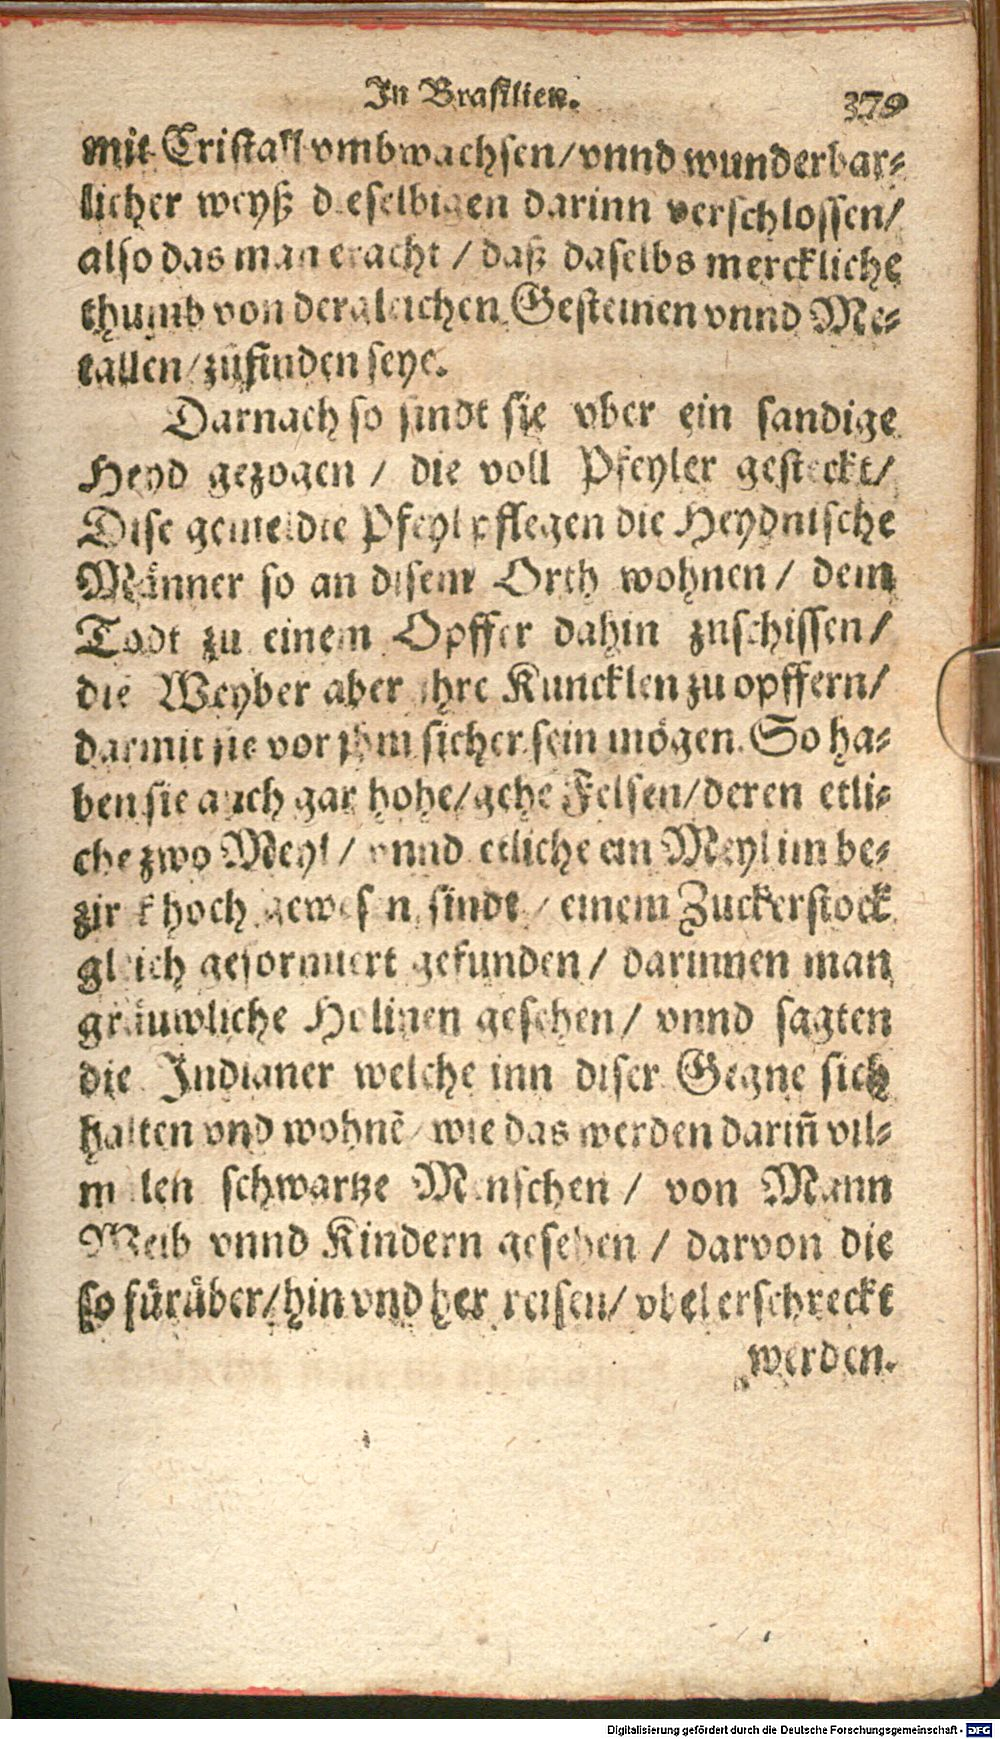 In Brasilien. 379
mit Cristall vmbwachsen/vnnd wunderbar-
licher weyß dieselbigen darinn verschlossen/
also das man eracht / daß daselbs merckliche
thumb von dergleichen Gesteinen vnnd Me-
tallen/zůfinden seye.
Darnach so sindt sie vber ein sandige
Heyd gezogen / die voll Pfeyler gesteckt/
Dise gemeldte Pfeyl pflegen die Heydnische
Männer so an disem Orth wohnen / dem
Todt zu einem Opffer dahin zuschissen/
die Weyber aber ihre Kuncklen zu opffern/
darmit sie vor jhm sicher sein mögen. So ha-
ben sie auch gar hohe/gehe Felsen/deren etli-
che zwo Meyl / vnnd etliche ein Meyl im be-
zirck hoch gewesen sindt / einem Zuckerstock
gleich geformiert gefunden / darinnen man
gräuwliche Holinen gesehen / vnnd sagten
die Indianer welche inn diser Gegne sich
halten vnd wohnẽ / wie das werden dariñ vil-
malen schwartze Menschen / von Mann
Weib vnnd Kindern gesehen / darvon die
so fürüber/hin vnd her reisen/ vbel erschreckt
werden.
Digitalisierung gefördert durch die Deutsche Forschungsgemeinschaft - DFG